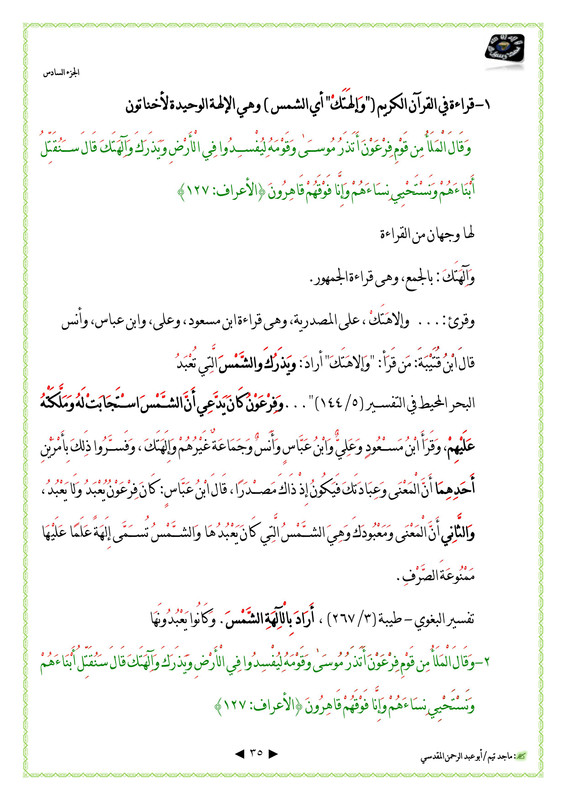 الجزء السادس
١-قراءة في القرآن الكريم ("وَإِلَهَتَكَ" أي الشمس) وهي الإلهة الوحيدة لأخناتون
وَقَالَ الْمَلَأُ مِن قَوْمِ فِرْعَوْنَ أَتَذَرُ مُوسَىٰ وَقَوْمَهُ لِيُفْسِدُوا فِي الْأَرْضِ وَيَذَرَكَ وَآلِهَتَكَ قَالَ سَنُقَتِّلُ
أَبْنَاءَهُمْ وَنَسْتَحْيِي نِسَاءَهُمْ وَإِنَّا فَوْقَهُمْ قَاهِرُونَ ﴿الأعراف: ١٢٧﴾
لها وجهان من القراءة
وَآلِهَتَكَ: بالجمع، وهى قراءة الجمهور.
وقرئ: ... وإلاهَتَكَ، على المصدرية، وهى قراءة ابن مسعود، وعلى، وابن عباس، وأنس
قالَ ابْنُ قُتَيْبَةَ: مَن قَرَأَ: "وإلاهَتَكَ" أرادَ: وَيَذَرَكَ والشَّمْسَ الَّتِي تُعْبَدُ
البحر المحيط في التفسير (٥/ ١٤٤)" ... وَفِرْعَوْنُ كَانَ يَدَّعِي أَنَّ الشَّمْسَ اسْتَجَابَتْ لَهُ وَمَلَّكَتْهُ
عَلَيْهِمْ، وَقَرَأَ ابْنُ مَسْعُودٍ وَعَلِيٌّ وَابْنُ عَبَّاسٍ وَأَنَسٌ وَجَمَاعَةٌ غَيْرُهُمْ وَإِلَهَتَكَ، وَفَسَّرُوا ذَلِكَ بِأَمْرَيْنِ
أَحَدِهِمَا أَنَّ الْمَعْنَى وَعِبَادَتَكَ فَيَكُونُ إِذْ ذَاكَ مَصْدَرًا، قَالَ ابْنُ عَبَّاسٍ: كَانَ فِرْعَوْنُ يُعْبَدُ وَلَا يَعْبُدُ،
وَالثَّانِي أَنَّ الْمَعْنَى وَمَعْبُودَكَ وَهِيَ الشَّمْسُ الَّتِي كَانَ يَعْبُدُهَا وَالشَّمْسُ تُسَمَّى إِلَهَةً عَلَمًا عَلَيْهَا
مَمْنُوعَةَ الصَّرْفِ.
تفسير البغوي - طيبة (٣/ ٢٦٧) ، أَرَادَ بِالْآلِهَةِ الشَّمْسَ. وَكَانُوا يَعْبُدُونَهَا
٢-وَقَالَ الْمَلَأُ مِن قَوْمِ فِرْعَوْنَ أَتَذَرُ مُوسَىٰ وَقَوْمَهُ لِيُفْسِدُوا فِي الْأَرْضِ وَيَذَرَكَ وَآلِهَتَكَ قَالَ سَنُقَتِّلُ أَبْنَاءَهُمْ
وَنَسْتَحْيِي نِسَاءَهُمْ وَإِنَّا فَوْقَهُمْ قَاهِرُونَ ﴿الأعراف: ١٢٧﴾
: ماجد تيم / أبو عبد الرحمن المقدسي
◄ ٣٥ ►